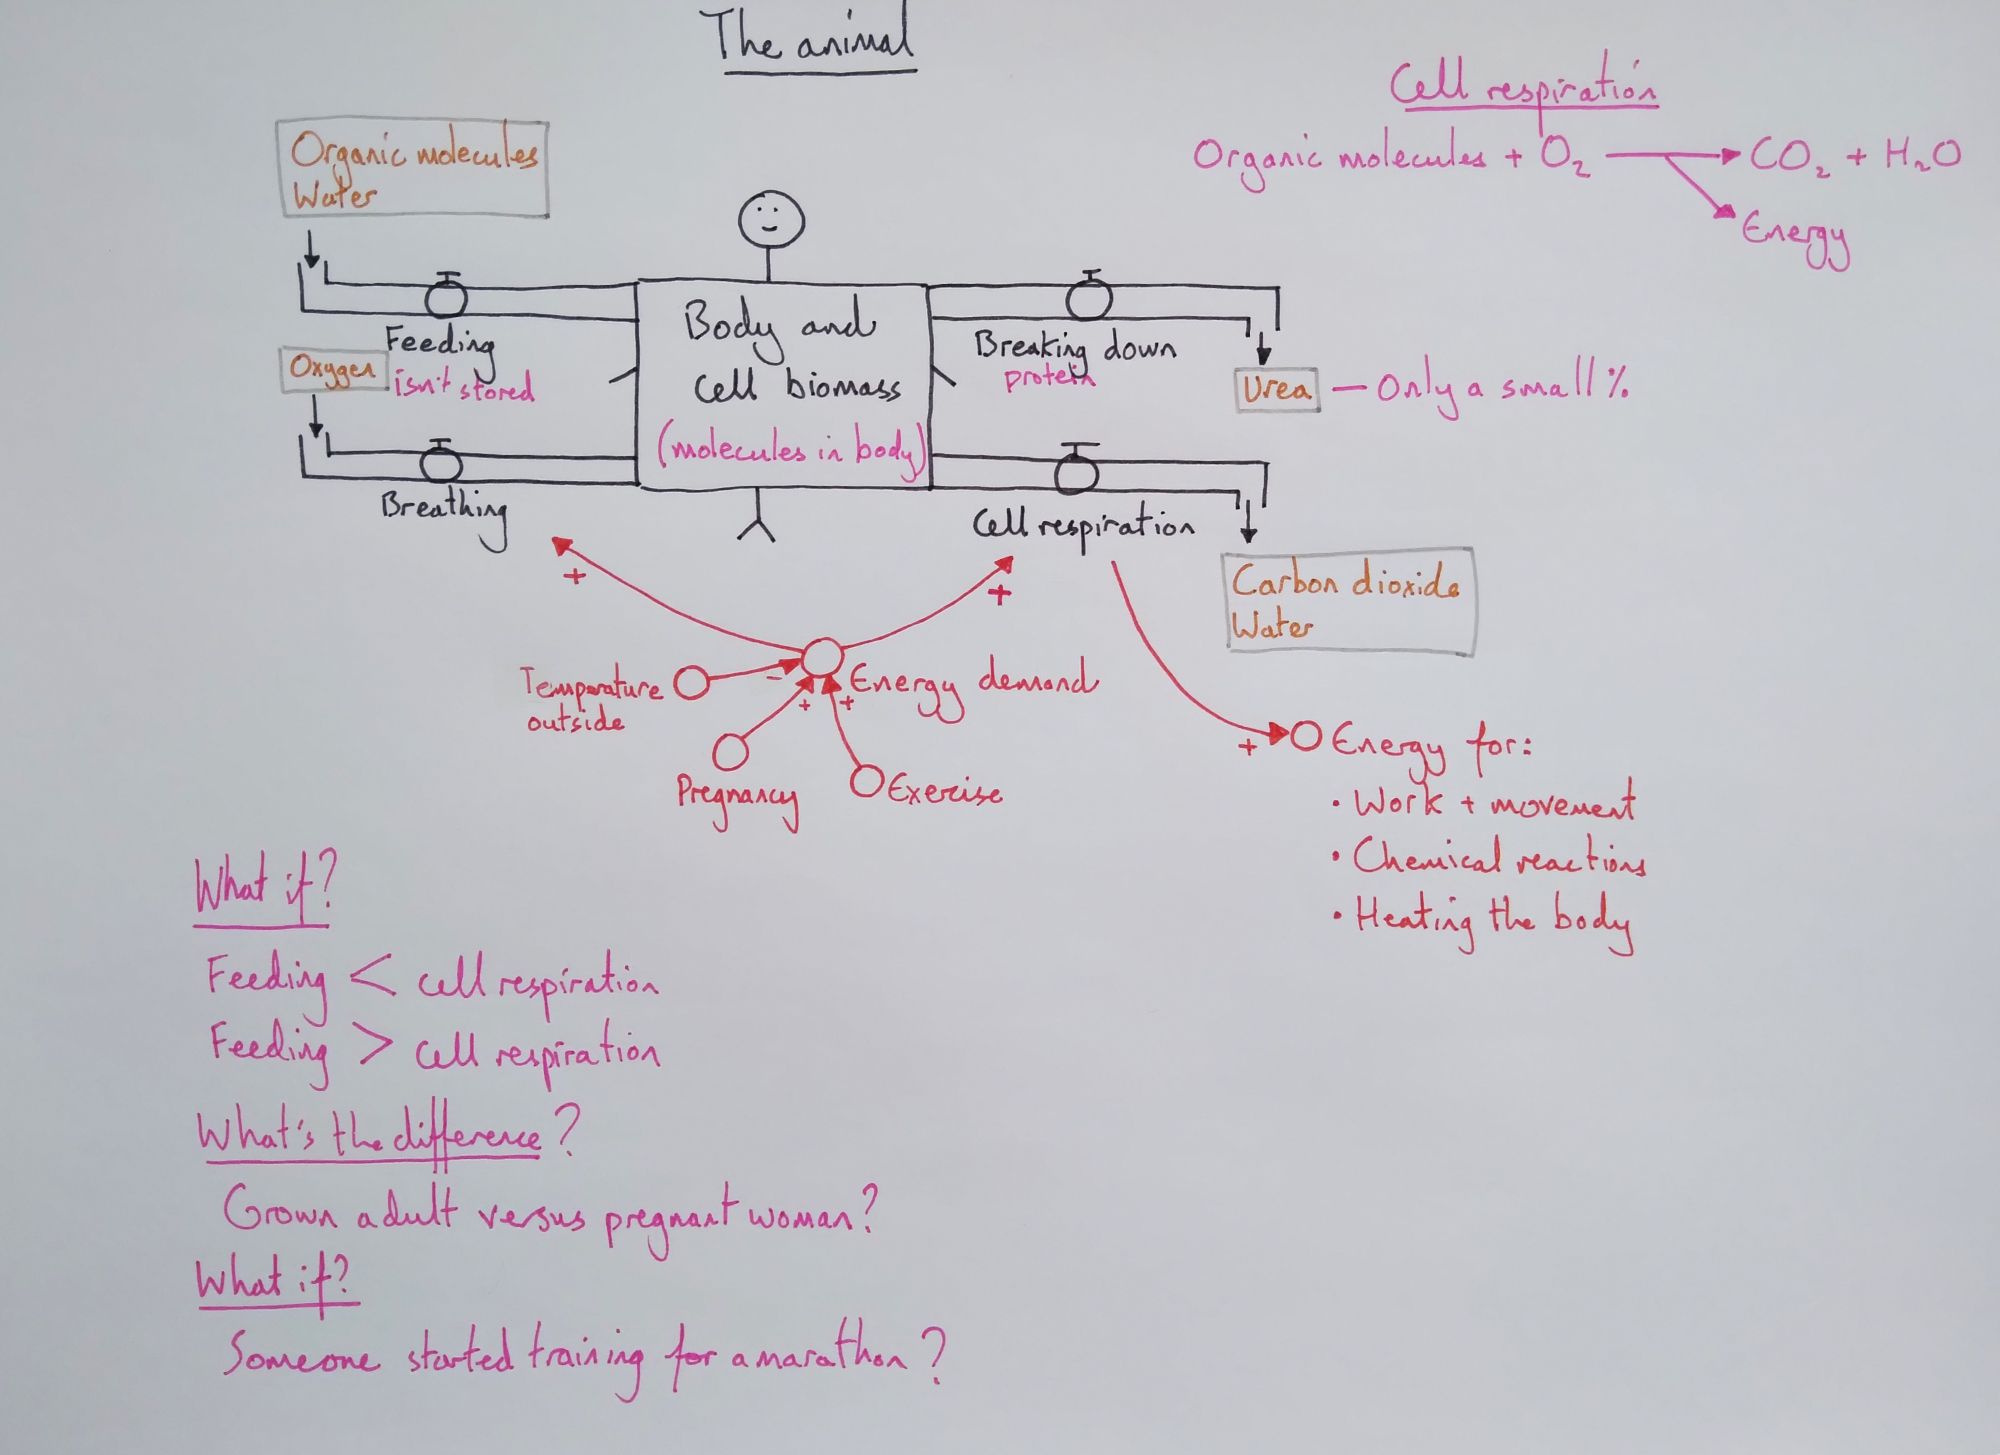 The animal
Cell respiration
Organic molecules + O₂ → CO₂ + H₂O
Energy
Organic molecules
Water
Feeding
Oxygen
isn't stored
Breathing
Body and
cell biomass
(molecules in body)
Breaking down
protein
Urea — Only a small %
Cell respiration
Carbon dioxide
Water
+
+
Temperature
outside
−
Energy demand
+
+
Pregnancy
Exercise
+
Energy for:
• Work + movement
• Chemical reactions
• Heating the body
What if?
Feeding < cell respiration
Feeding > cell respiration
What's the difference?
Grown adult versus pregnant woman?
What if?
Someone started training for a marathon?